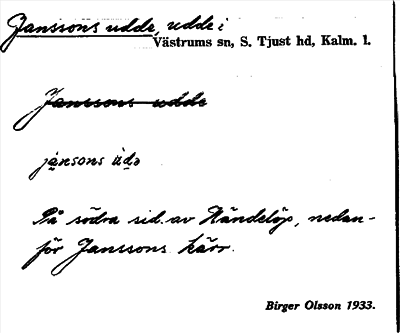 Janssons udde, udde i
Västrums sn, S. Tjust hd, Kalm. l.
Janssons udde
jansons ùdə
På södra sid. av Händelöp, nedan-
för Janssons kärr.
Birger Olsson 1933.